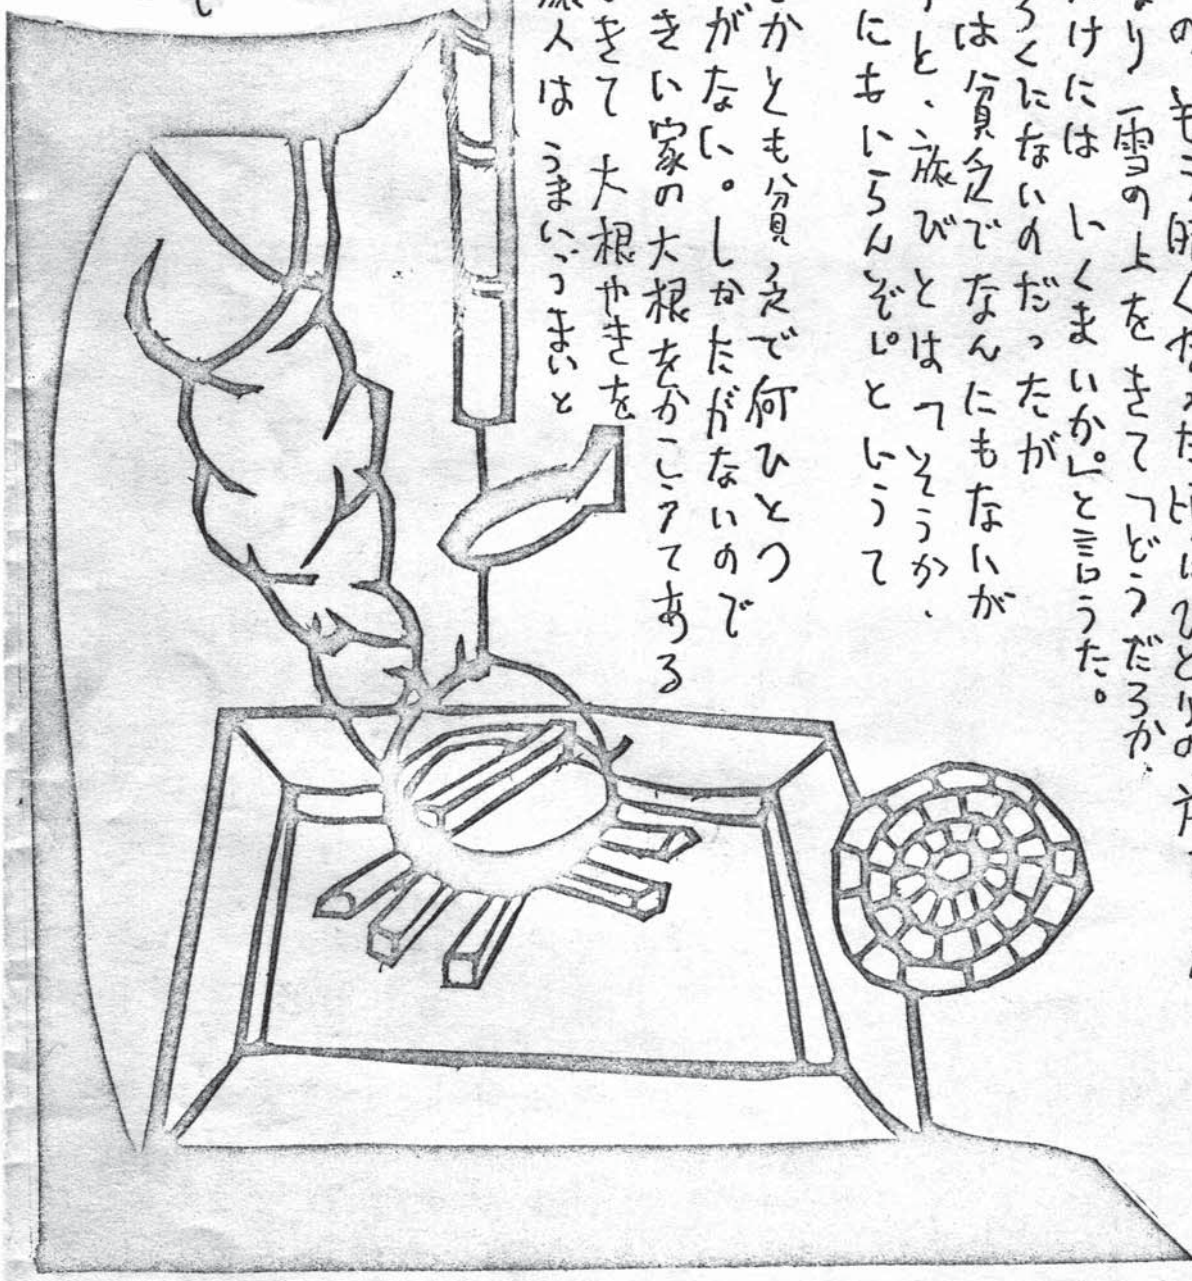 の もう暗くなった頃にひとりの
なり 雪の上を きて「どうだろか、
けには いくまいか。」と言うた。
ろくにないのだったが
は貧乏でなんにもないが
と、旅びとは「そうか、
にもいらんぞ。」というて
かとも貧乏で何ひとつ
がない。しかたがないので
きい家の大根をかこうてある
きて 大根やきを
旅人は うまいうまいと